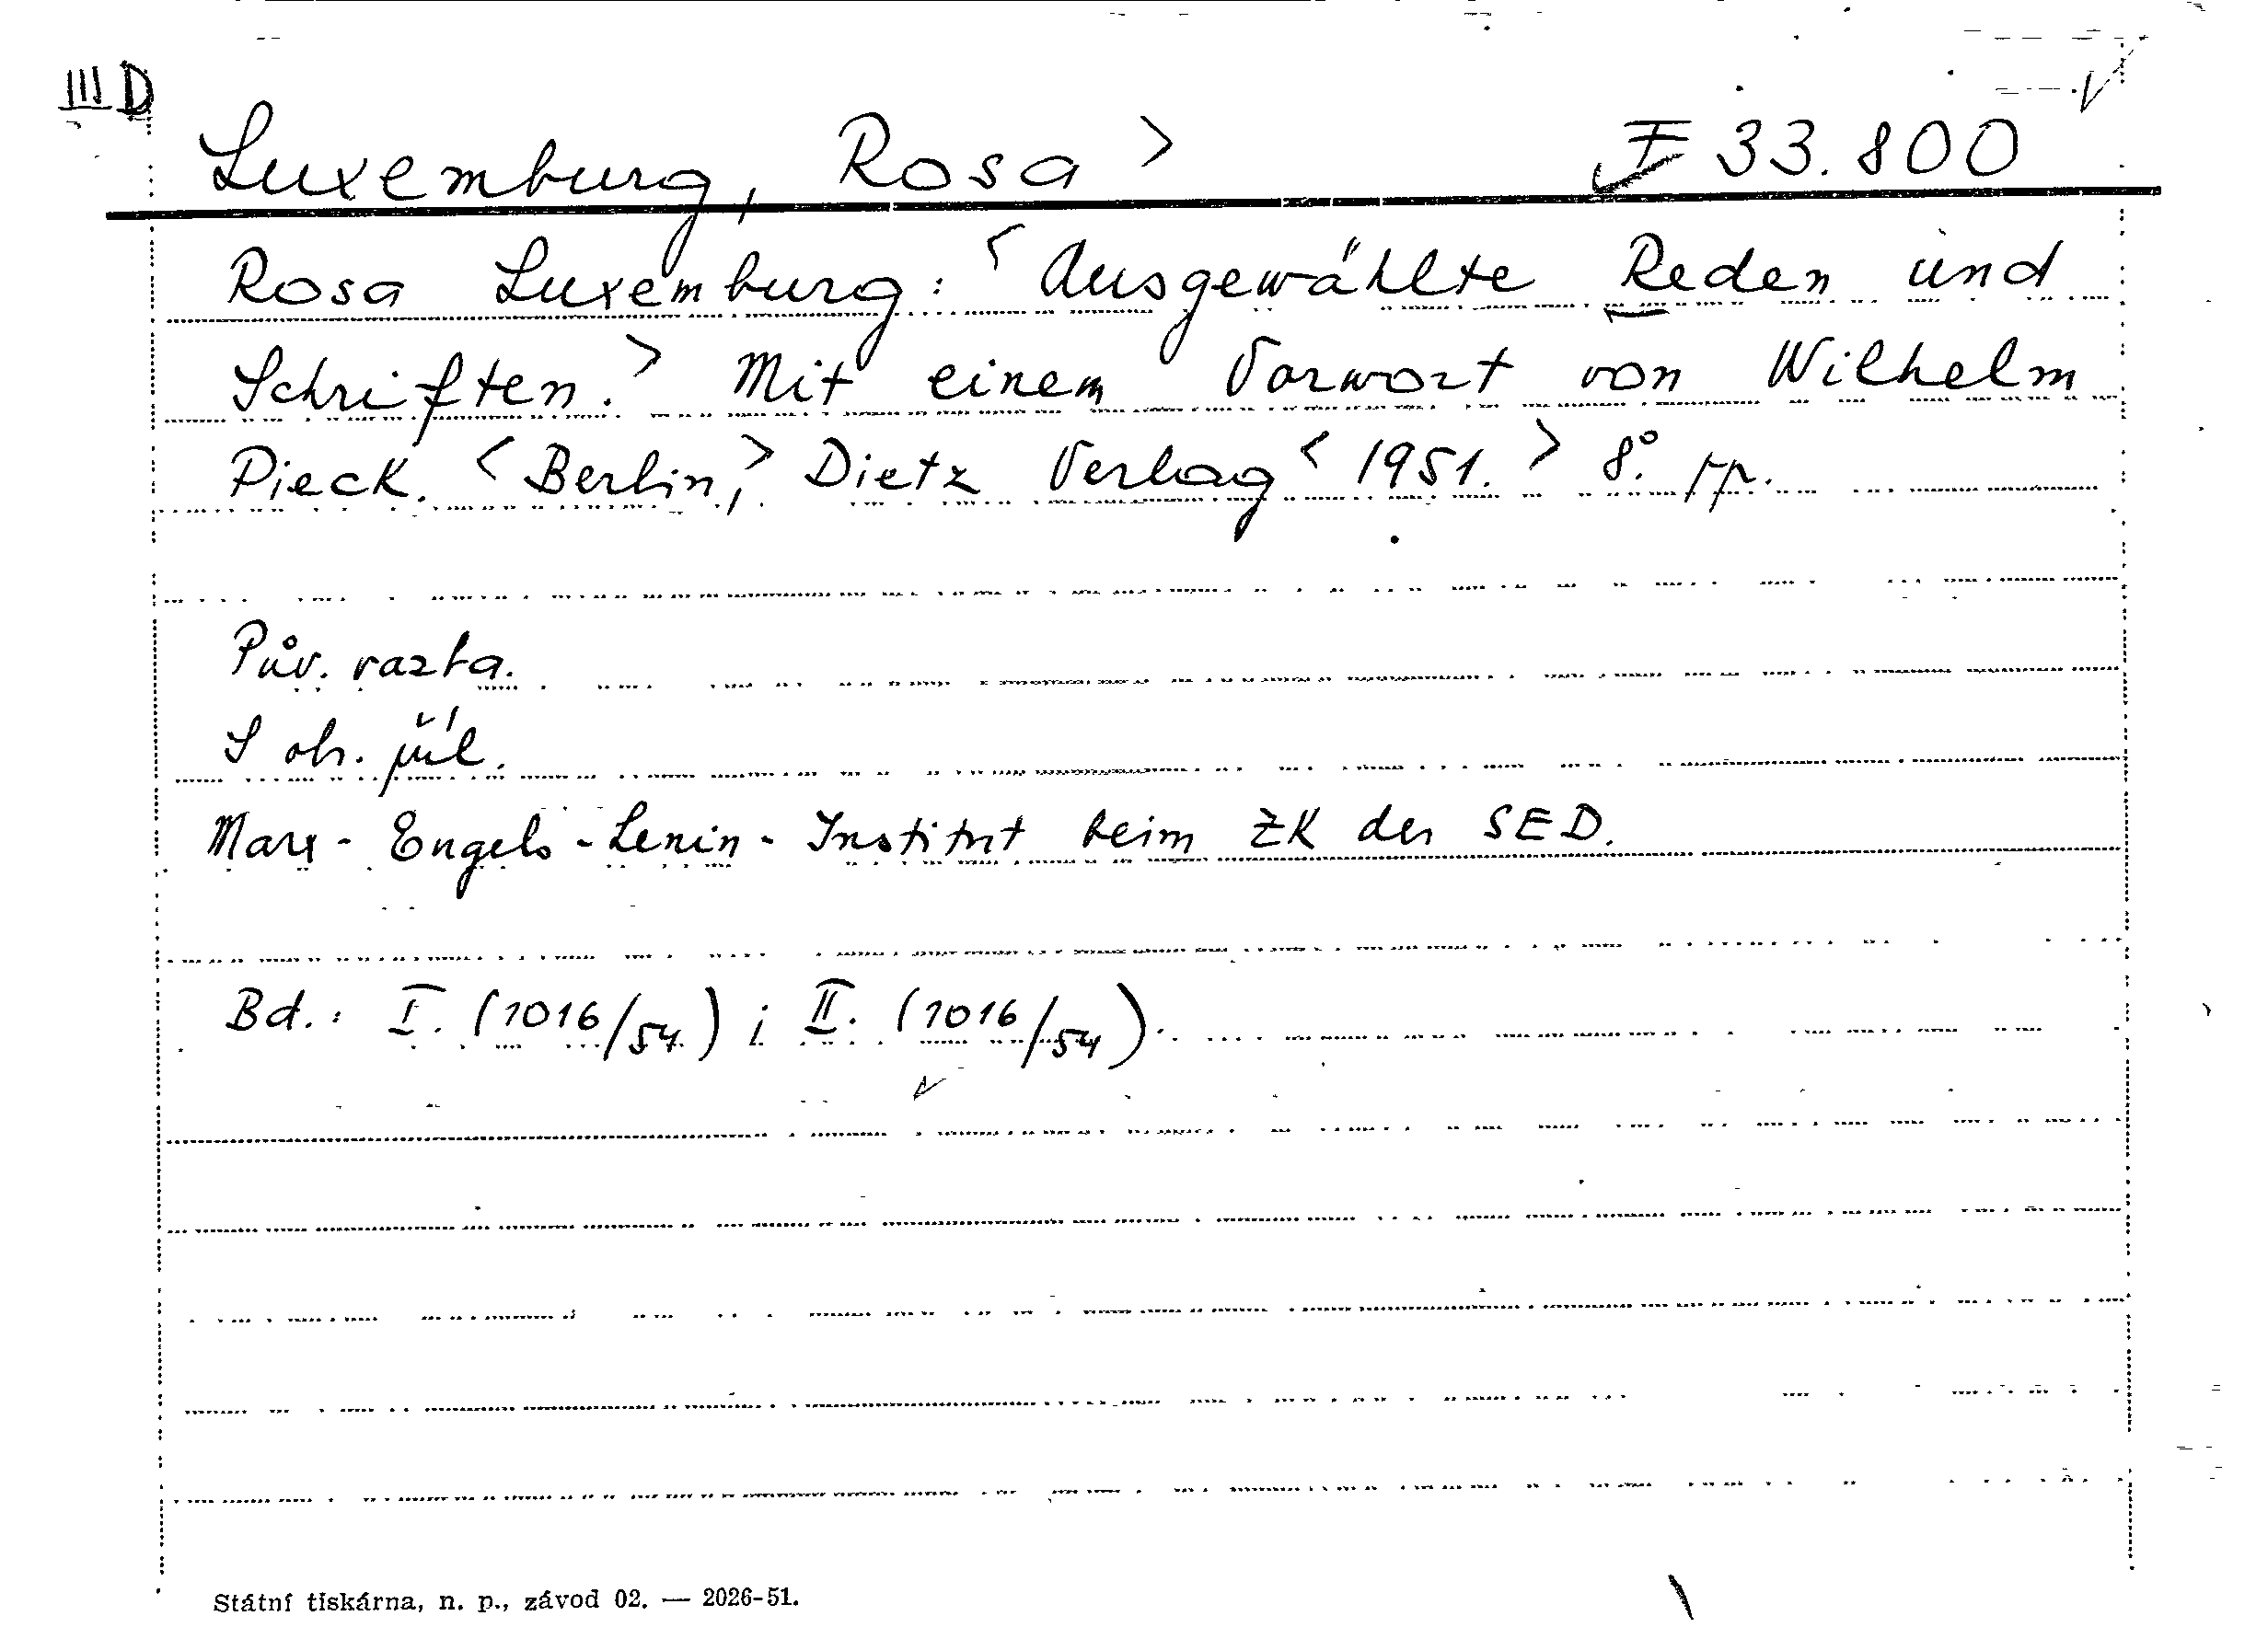 III D
Luxemburg, Rosa > F 33.800
Rosa Luxemburg: < Ausgewählte Reden und
Schriften. > Mit einem Vorwort von Wilhelm
Pieck. < Berlin, > Dietz Verlag < 1951. > 8°. pp.
Pův. vazba.
S obr. příl.
Marx-Engels-Lenin-Institut beim ZK der SED.
Bd.: I. (1016/54) ; II. (1016/54).
Státní tiskárna, n. p., závod 02. — 2026-51.